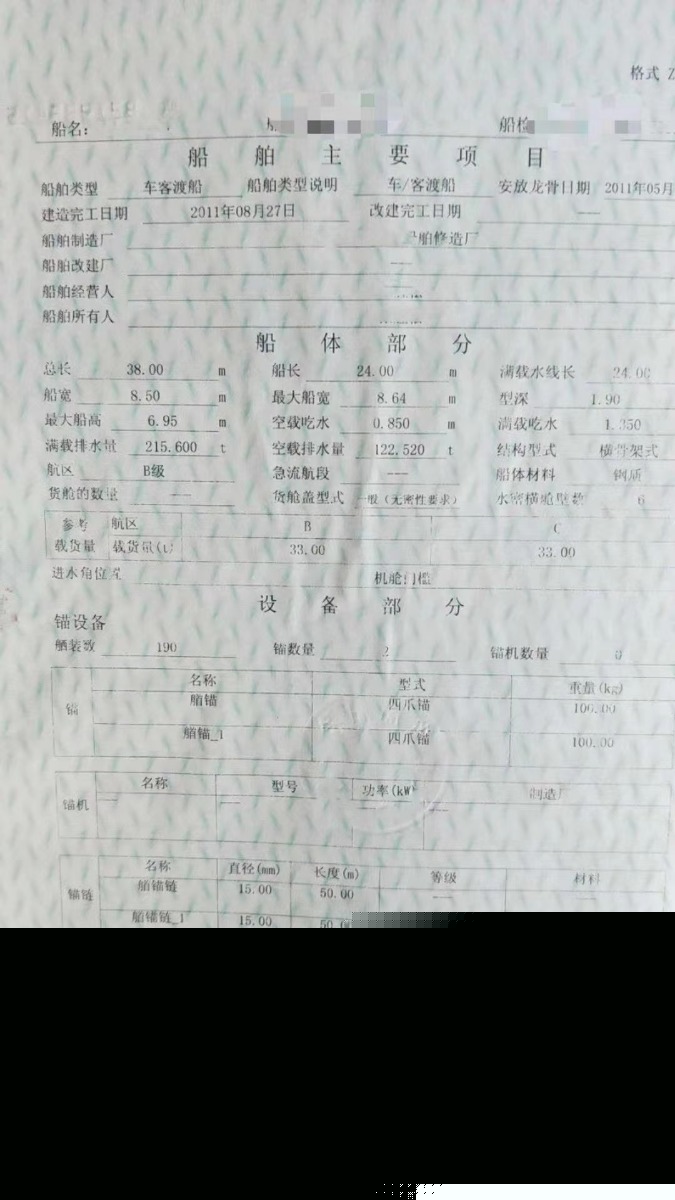 格式 Z
船名: 船检
船舶主要项目
船舶类型 车客渡船 船舶类型说明 车/客渡船 安放龙骨日期 2011年05月
建造完工日期 2011年08月27日 改建完工日期 ——
船舶制造厂 舶修造厂
船舶改建厂 ——
船舶经营人
船舶所有人
船体部分
总长 38.00 m 船长 24.00 m 满载水线长 24.00
船宽 8.50 m 最大船宽 8.64 m 型深 1.90
最大船高 6.95 m 空载吃水 0.850 m 满载吃水 1.350
满载排水量 215.600 t 空载排水量 122.520 t 结构型式 横骨架式
航区 B级 急流航段 —— 船体材料 钢质
货舱的数量 —— 货舱盖型式 一般（无密性要求） 水密横舱壁数 6
参考 航区 B C
载货量 载货量(t) 33.00 33.00
进水角位置 机舱门槛
设备部分
锚设备
舾装数 190 锚数量 2 锚机数量 0
名称 型式 重量(kg)
锚 艏锚 四爪锚 100.00
艏锚_1 四爪锚 100.00
锚机 名称 型号 功率(kW) 制造厂
—— ——
名称 直径(mm) 长度(m) 等级 材料
锚链 艏锚链 15.00 50.00 —— ——
艏锚链_1 15.00